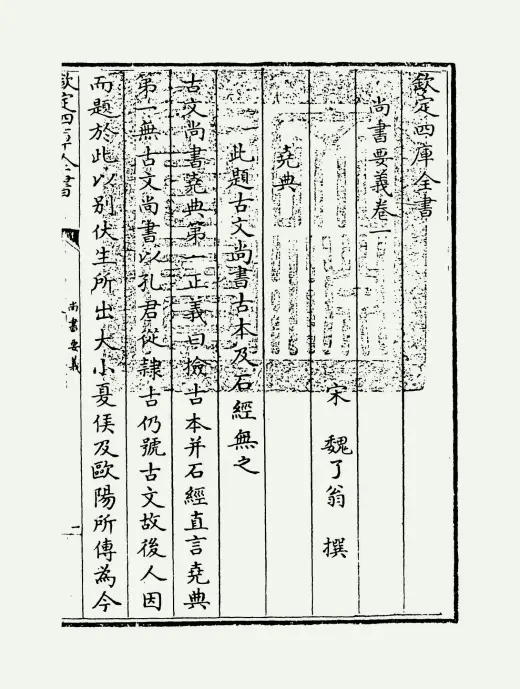 欽定四庫全書
尚書要義卷一
宋 魏了翁 撰
堯典
一此題古文尚書古本及石經無之
古文尚書堯典第一正義曰檢古本并石經直言堯典
第一無古文尚書以孔君從隸古仍號古文故後人因
而題於此以別伏生所出大小夏侯及歐陽所傳為今
欽定四庫全書
尚書要義
一